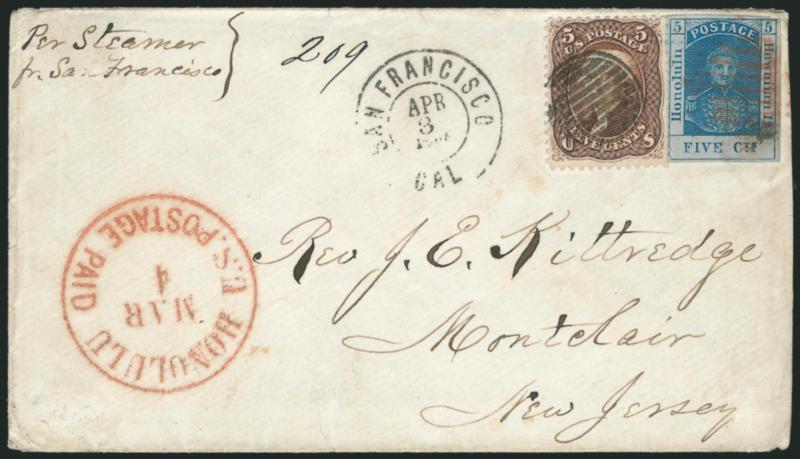 Per Steamer
fr. San Francisco
209
SAN FRANCISCO
APR
3
CAL
5 U.S. POSTAGE 5
FIVE CENTS
U S
5 POSTAGE 5
Honolulu
Hawaiian
FIVE
HONOLULU
U.S. POSTAGE PAID
MAR
4
Rev J. E. Kittredge
Montclair
New Jersey